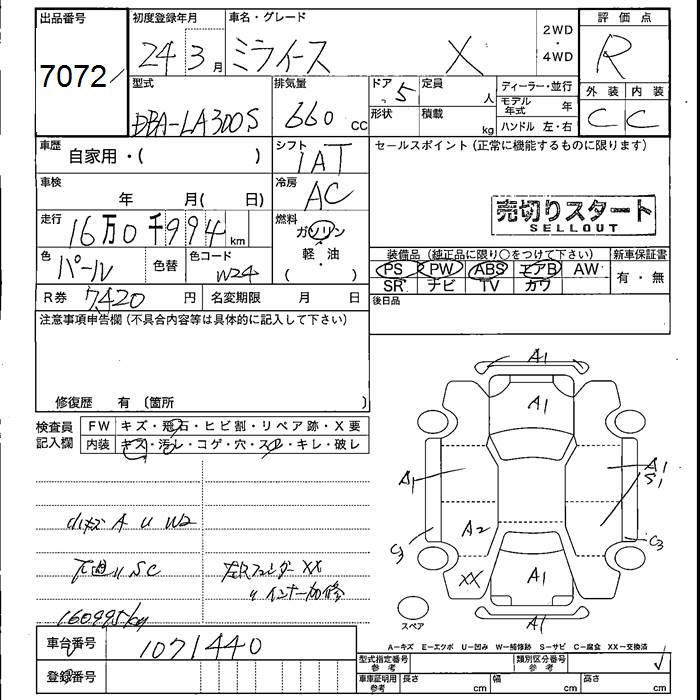 出品番号
7072
初度登録年月
24 3 月
車名・グレード
ミライース X
2WD
・
4WD
評価点
R
型式
DBA-LA300S
排気量
660 cc
ドア
5
定員
人
形状
積載
kg
ディーラー・並行
モデル年式 年
ハンドル 左・右
外装 内装
C C
車歴
自家用・( )
シフト
IAT
セールスポイント (正常に機能するものに限ります)
車検
年 月( 日)
冷房
AC
売切りスタート
SELLOUT
走行
16万0千994 km
燃料
ガソリン
・
軽・油
( )
色
パール
色替
色コード
W24
装備品 (純正品に限り○をつけて下さい)
新車保証書
PS PW ABS エアB AW
SR ナビ TV カワ
有・無
R券 7,420 円
名変期限 月 日
後日品
注意事項申告欄 (不具合内容等は具体的に記入して下さい)
修復歴 有 〔箇所 〕
検査員記入欄
FW キズ・飛石・ヒビ割・リペア跡・X要
内装 キズ・汚レ・コゲ・穴・スレ・キレ・破レ
小キズ A U W2
下廻り SC
左Rフェンダー XX
〃 インナー加修
160995kg
A1
A1
A1
A1
S1
A2
C3
C3
XX
A1
A1
スペア
A-キズ E-エクボ U-凹み W-補修跡 S-サビ C-腐食 XX-交換済
車台番号
1071440
登録番号
型式指定番号 参考
類別区分番号 参考
車庫証明用 参考
長さ cm
幅 cm
高さ cm